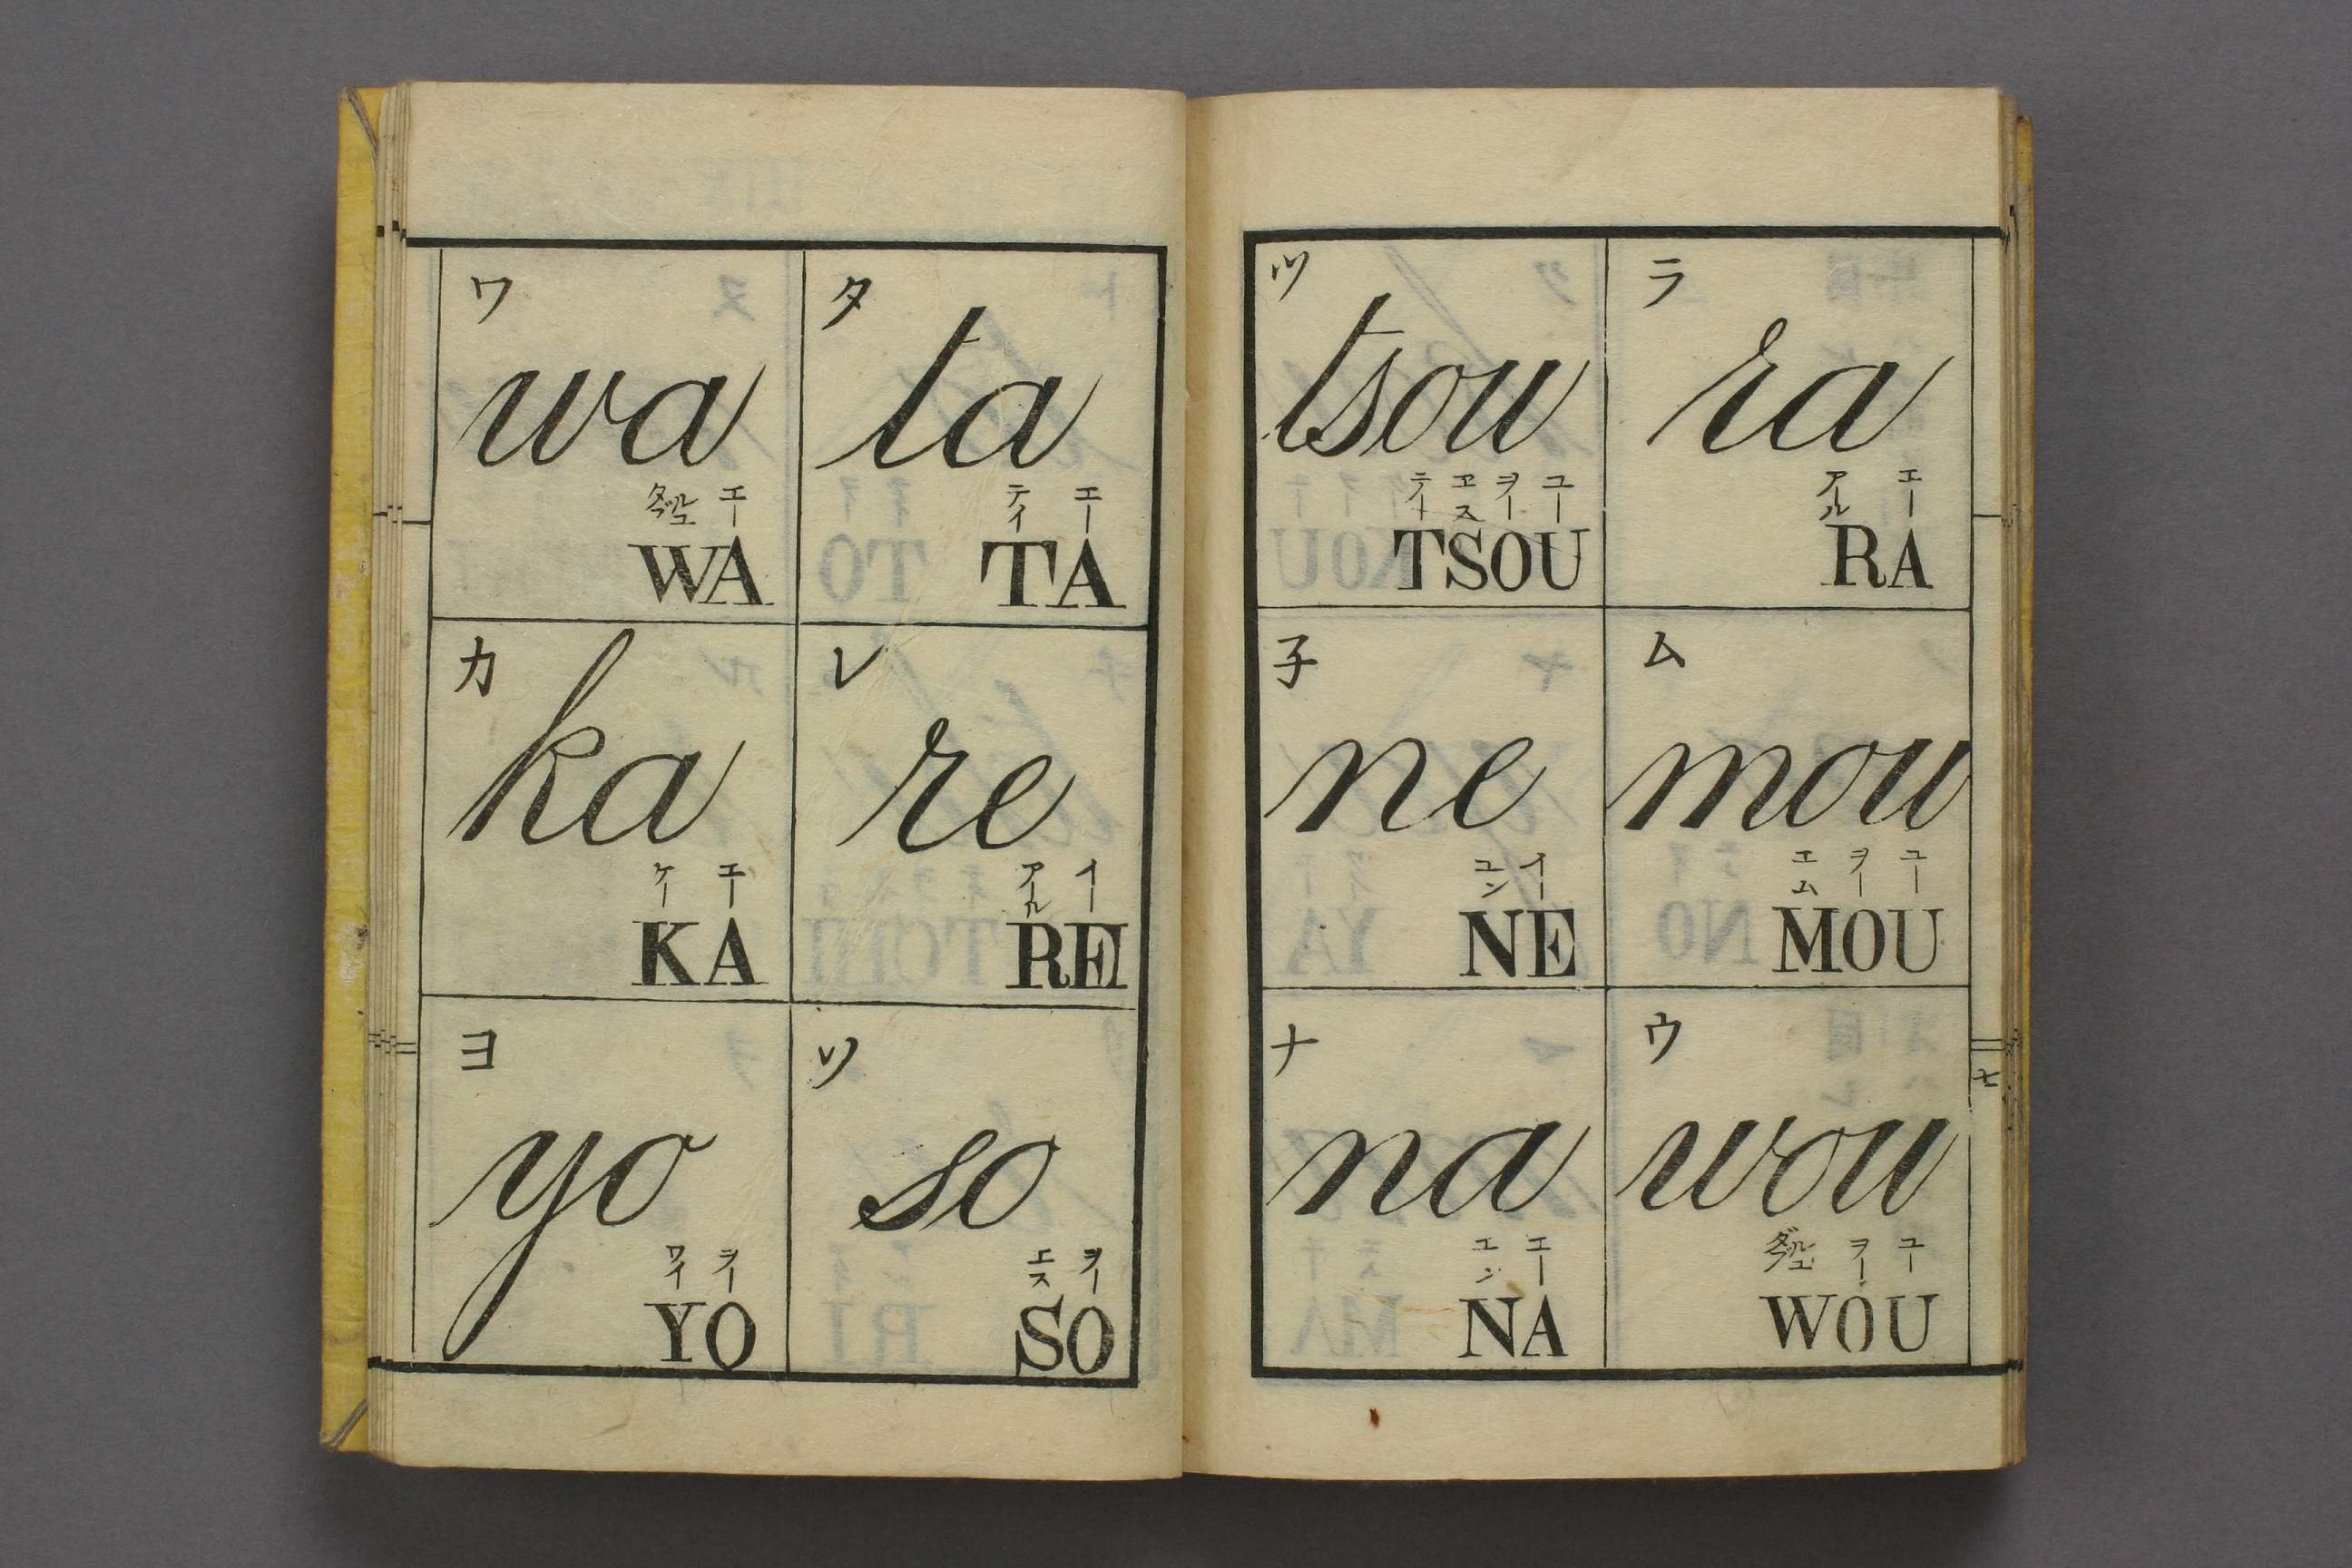 ワ
wa
ダブルユ エー
WA
カ
ka
ケー エー
KA
ヨ
yo
ワイ ヲー
YO
タ
ta
テイ エー
TA
レ
re
アール イー
RE
ソ
so
エス ヲー
SO
ツ
tsou
テー ヱス ヲー ユー
TSOU
子
ne
エン イー
NE
ナ
na
エン エー
NA
ラ
ra
アール エー
RA
ム
mou
エム ヲー ユー
MOU
ウ
wou
ダブルユ ヲー ユー
WOU
七